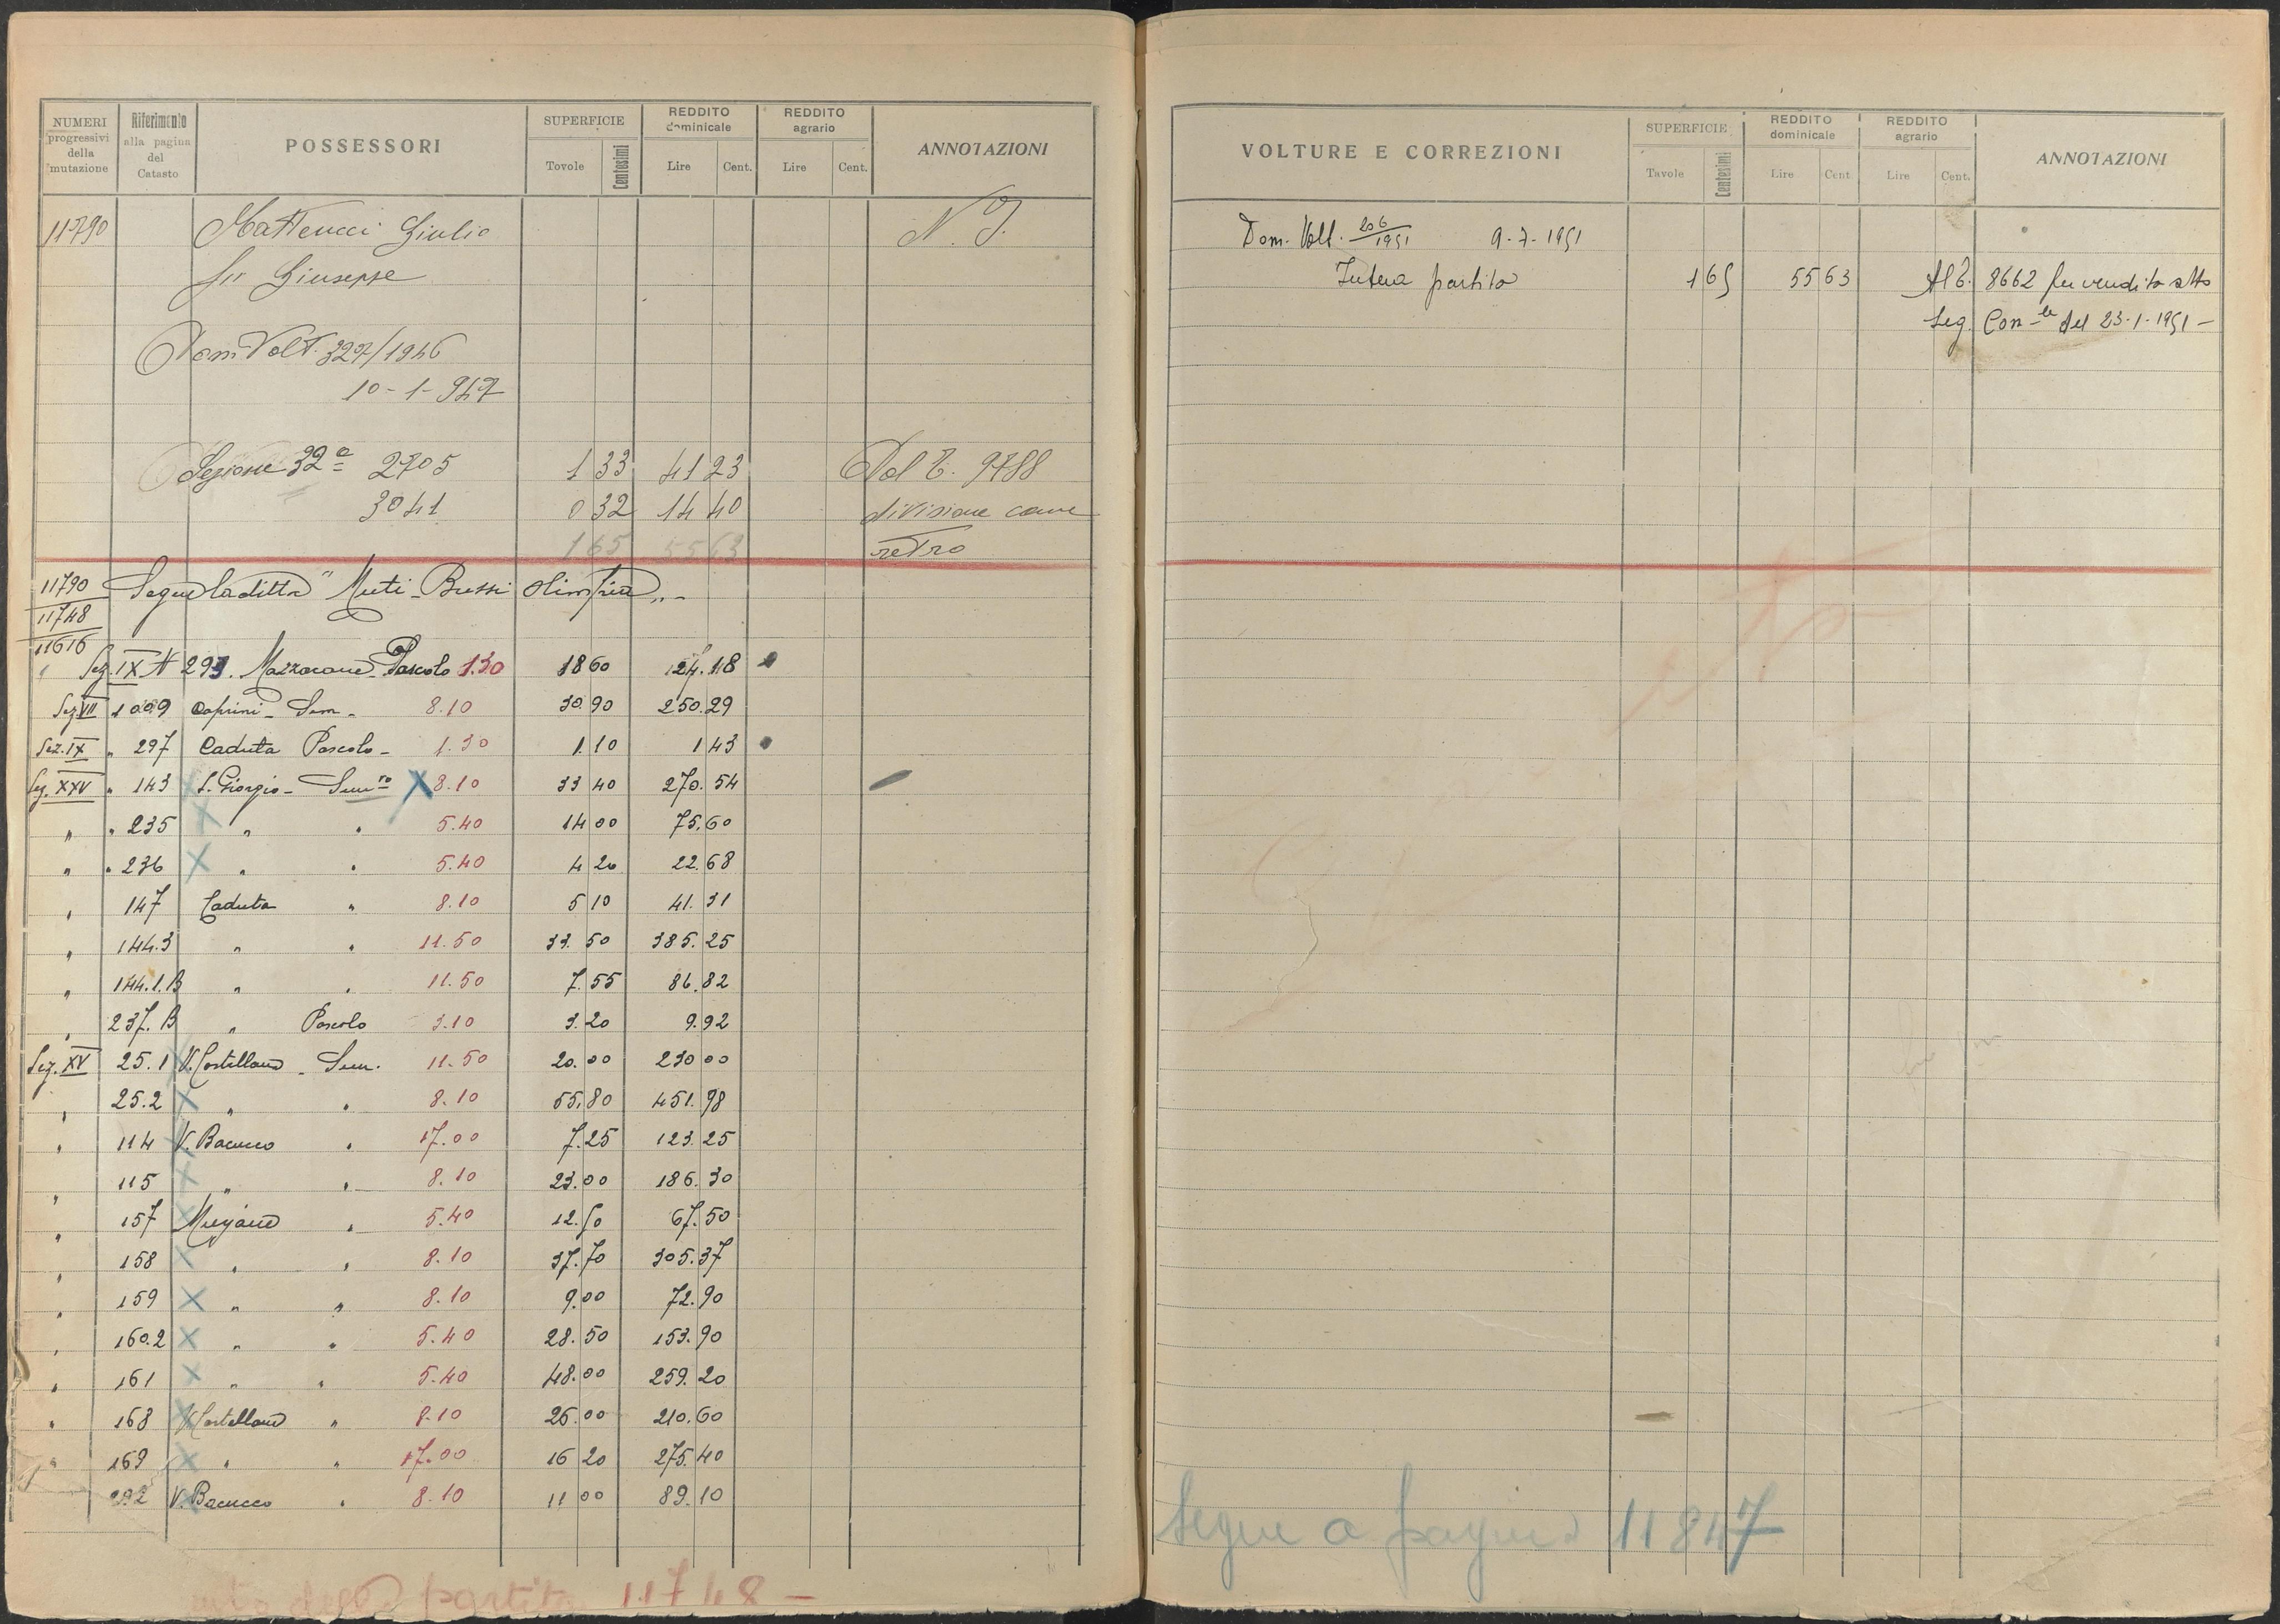 NUMERI progressivi della mutazione | Riferimento alla pagina del Catasto | POSSESSORI | SUPERFICIE Tovole Centesimi | REDDITO dominicale Lire Cent. | REDDITO agrario Lire Cent. | ANNOTAZIONI
11790 Matteucci Giulio N. I.
fu Giuseppe
Dom Volt. 327/1946
10-1-947
Sezione 32ª 2705 1 33 41 23 Dal T. 9788
3041 0 32 14 40 divisione come
1 65 55 63 retro
11790 Segue la ditta "Muti-Bussi Olimpia"
11748
11616
Sez. IX N 293. Mazzocane Pascolo 1.30 18 60 124.18
Sez VII 1009 Caprini - Sem. 8.10 30.90 250.29
Sez. IX " 297 Caduta Pascolo - 1.30 1.10 1 43
Sez. XXV " 143 S. Giorgio - Semro X 8.10 33 40 270.54
" " 235 X " " 5.40 14 00 75.60
" " 236 X " " 5.40 4 20 22.68
" 147 Caduta " 8.10 5 10 41.31
" 144.3 " " 11.50 33.50 385.25
" 144.1.B " " 11.50 7.55 86.82
" 237.B " Pascolo 3.10 3.20 9.92
Sez. XV 25.1 V. Castellano - Sem. 11.50 20.00 230 00
" 25.2 X " " 8.10 55.80 451.98
" 114 V. Bacucco " 17.00 7.25 123.25
" 115 X " " 8.10 23.00 186.30
" 157 Mugiano " 5.40 12.50 67.50
" 158 X " " 8.10 37.70 305.37
" 159 X " " 8.10 9.00 72.90
" 160.2 X " " 5.40 28.50 153.90
" 161 X " " 5.40 48.00 259.20
" 168 V. Castellano " 8.10 26.00 210.60
" 169 X " " 17.00 16 20 275.40
292 V. Bacucco " 8.10 11 00 89.10
della partita 11748 -
VOLTURE E CORREZIONI | SUPERFICIE Tavole Centesimi | REDDITO dominicale Lire Cent | REDDITO agrario Lire Cent. | ANNOTAZIONI
Dom. Volt. 206/1951 9-7-1951
Intera partita 1 65 55 63 Al T. 8662 per vendita atto
Seg. Con-le del 23-1-1951 -
Segue a pagina 11847